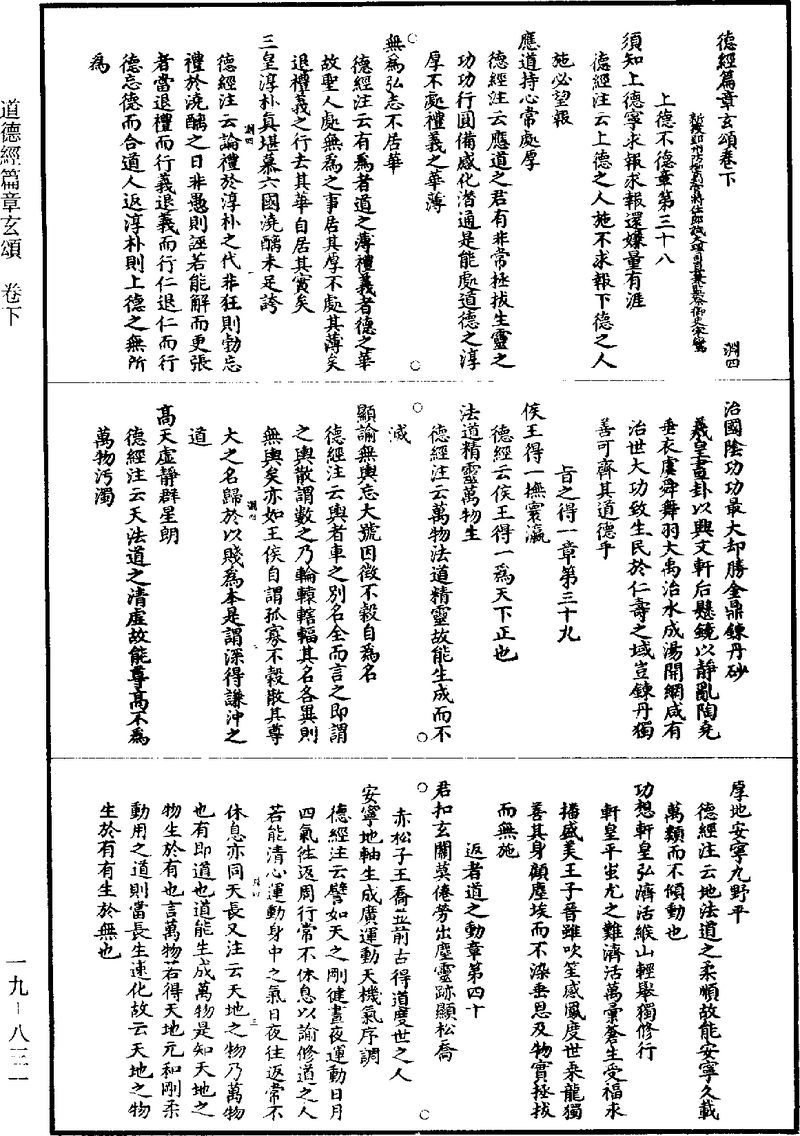 道德經篇章玄頌　卷下
一九－八三二
德經篇章玄頌卷下
淵四
上德不德章第三十八
須知上德寧求報求報還嫌量有涯
德經注云上德之人施不求報下德之人
施必望報
應道持心常處厚
德經注云應道之君有非常拯拔生靈之
功功行圓備感化潛通是能處道德之淳
厚不處禮義之華薄
無爲弘志不居華
德經注云有爲者道之薄禮義者德之華
故聖人處無爲之事居其厚不處其薄矣
退禮義之行去其華自居其實矣
三皇淳朴真堪慕六國澆醨未足誇
淵四
德經注云論禮於淳朴之代非狂則勃忘
禮於澆醨之日非愚則誣若能解而更張
者當退禮而行義退義而行仁退仁而行
德忘德而合道人返淳朴則上德之無所
爲
治國陰功功最大却勝金鼎鍊丹砂
羲皇畫卦以興文軒后懸鏡以靜亂陶堯
垂衣虞舜舞羽大禹治水成湯開網咸有
治世大功致生民於仁壽之域豈鍊丹獨
善可齊其道德乎
昔之得一章第三十九
侯王得一撫寰瀛
德經云侯王得一爲天下正也
法道精靈萬物生
德經注云萬物法道精靈故能生成而不
滅
顯諭無輿忘大號因徵不穀自爲名
德經注云輿者車之別名全而言之即謂
之輿散謂數之乃輪轅轄輻其名各異則
無輿矣亦如王侯自謂孤寡不穀散其尊
大之名歸於以賤爲本是謂深得謙沖之
道
高天虛靜群星朗
德經注云天法道之清虛故能尊高不爲
萬物污濁
厚地安寧九野平
德經注云地法道之柔順故能安寧久載
萬類而不傾動也
功想軒皇弘濟活緱山輕舉獨修行
軒皇平蚩尤之難濟活萬彙蒼生受福永
播盛美王子晉雖吹笙感鳳度世乘龍獨
善其身顧塵埃而不染垂恩及物實拯拔
而無施
返者道之動章第四十
君扣玄關莫倦勞出塵靈跡顯松喬
赤松子王喬並前古得道度世之人
安寧地軸生成廣運動天機氣序調
德經注云譬如天之剛健晝夜運動日月
四氣往返周行常不休息以諭修道之人
若能清心運動身中之氣日夜往返常不
休息亦同天長又注云天地之物乃萬物
也有即道也道能生成萬物是知天地之
物生於有也言萬物若得天地元和剛柔
動用之道則當長生速化故云天地之物
生於有有生於無也